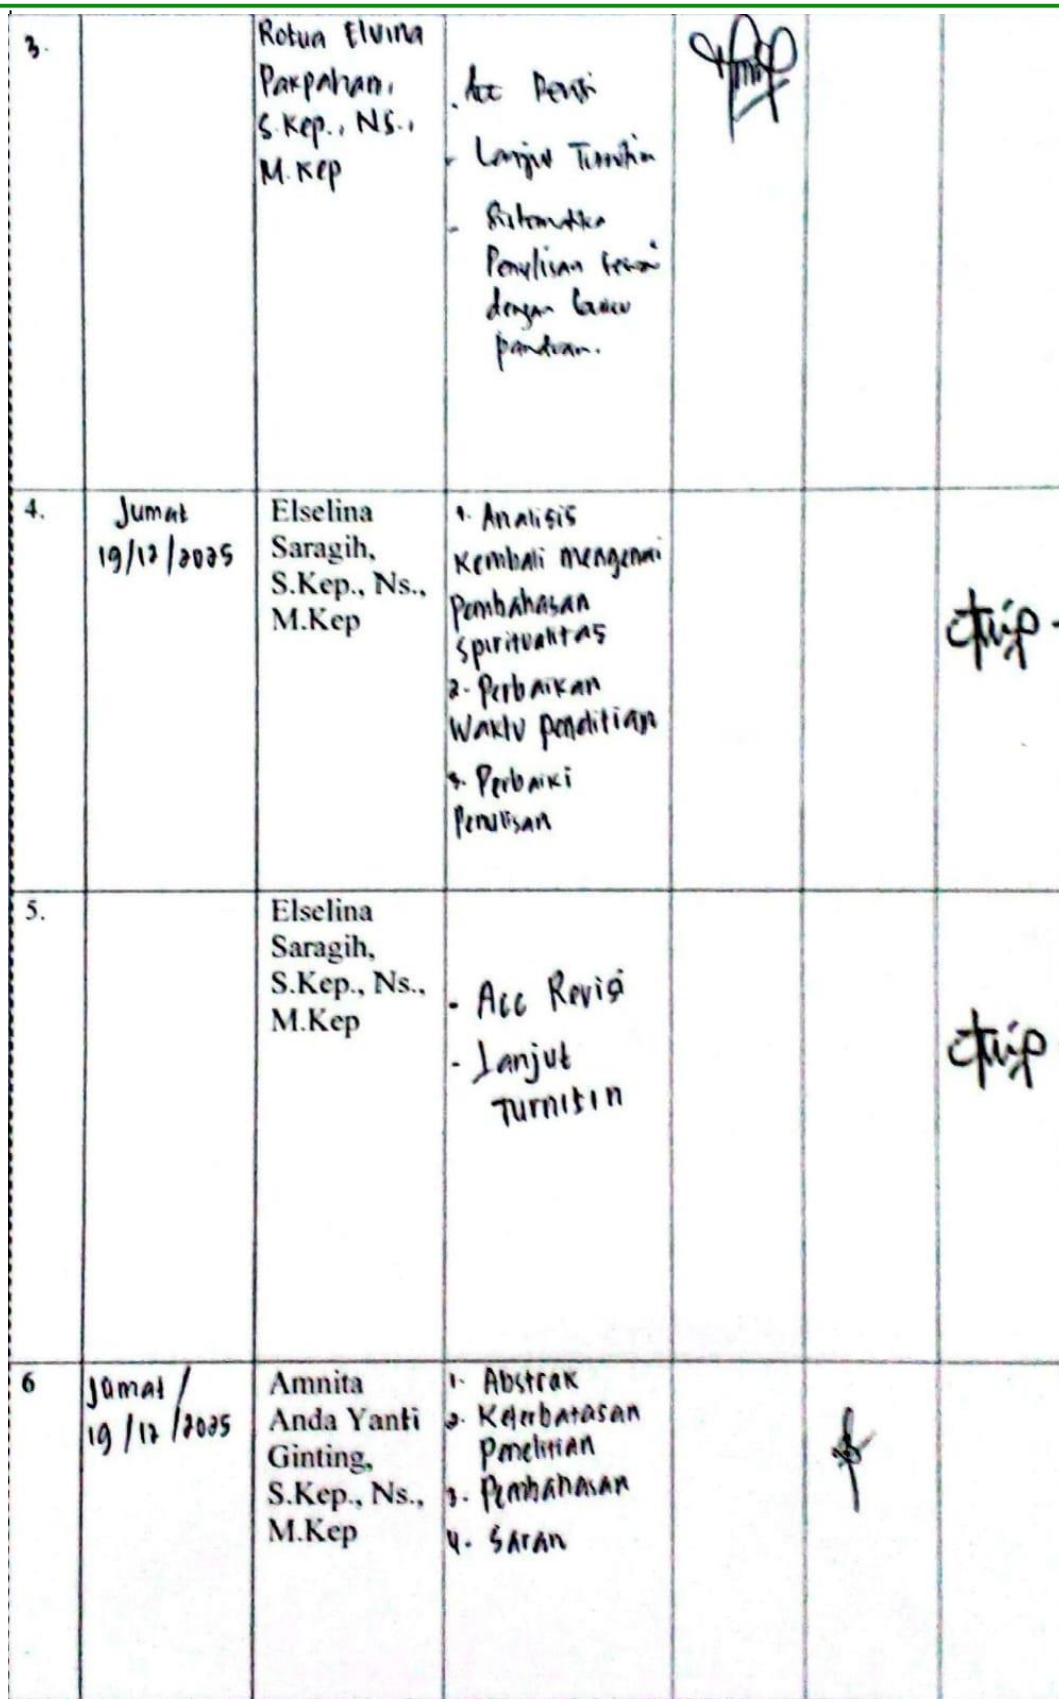 3.
Rotua Elvina
Pakpahan,
S.Kep., Ns.,
M.Kep
. Acc Revisi
- Lanjut Turnitin
- Sistematika
Penulisan sesuai
dengan buku
panduan.
4.
Jumat
19/12/2025
Elselina
Saragih,
S.Kep., Ns.,
M.Kep
1. Analisis
Kembali mengenai
Pembahasan
Spiritualitas
2. Perbaikan
Waktu penelitian
3. Perbaiki
Penulisan
5.
Elselina
Saragih,
S.Kep., Ns.,
M.Kep
- Acc Revisi
- Lanjut
Turnitin
6
Jumat /
19/12/2025
Amnita
Anda Yanti
Ginting,
S.Kep., Ns.,
M.Kep
1. Abstrak
2. Keterbatasan
Penelitian
3. Pembahasan
4. Saran